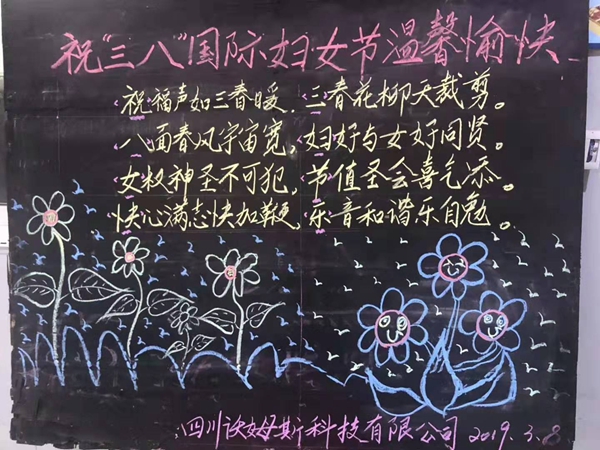 祝"三八"国际妇女节温馨愉快
祝福声如三春暖，三春花柳天裁剪。
八面春风宇宙宽，妇好与女好同贤。
女权神圣不可犯，节值圣会喜气添。
快心满志快加鞭，乐音和谐乐自勉。
四川沃姆斯科技有限公司 2019.3.8